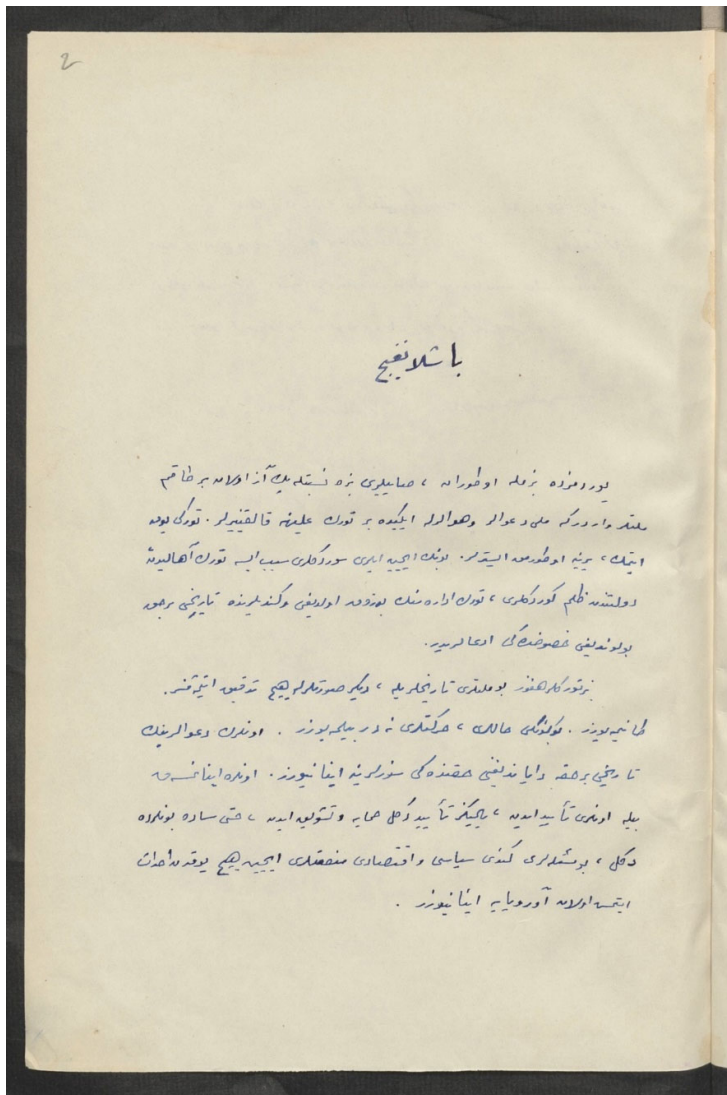 2
باشلانغیج
یوردمزده بزمله اوطوران ، صاییلری بزه نسبتله پك آز اولان بر طاقم
ملتلر واردركه ملی دعوالر وهوالرله ایكیده بر تورك علیهنه قالقییرلر . توركی یوق
ایتمك ، یرینه اوطورمق ایسترلر . بونك ایچین ایلری سوردكلری سبب ایسه تورك آهالیدن
دولتندن ظلم كوردكلری ، تورك اداره سنك بوزوق اولدیغی وكندیلرنده تاریخی برحق
بولوندیغی خصوصنده كی ادعالریدر .
بز توركلر هنوز بو ملتلری تاریخلریله ، دیكر صورتلرله هیچ تدقیق ایتمه مشز .
طانیمه یورز . بوكونكی حاللری ، حركتلری نه در بیلمه یورز . اونلرك دعوالرینك
تاریخی برحقه دایاندیغی حقنده كی سوزلرینه اینانیورز . اونلره اینانمسه ق
بیله اونلری تأیید ایدن ، یالیكز تأیید دكل حمایه وتشویق ایدن ، حتی ساده بونلرده
دكل ، بو مسئله لری كندی سیاسی واقتصادی منفعتلری ایچین هیچ یوقدن احداث
ایتمش اولان آوروپایه اینانیورز .